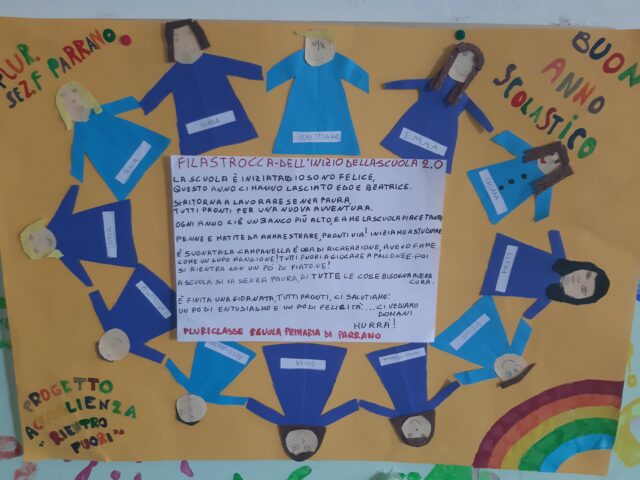 PLUR.
SEZ.F PARRANO
BUON
ANNO
SCOLASTICO
GIADA
SEBASTIANO
EMMA
FILASTROCCA-DELL'INIZIO DELLA SCUOLA 2.0
LA SCUOLA È INIZIATA E IO SONO FELICE,
QUESTO ANNO CI HANNO LASCIATO EDO E BEATRICE.
SI RITORNA A LAVORARE SENZA PAURA,
TUTTI PRONTI PER UNA NUOVA AVVENTURA.
OGNI ANNO C'È UN BANCO PIÙ ALTO, E A ME LA SCUOLA PIACE TANTO
PENNE E MATITE DA AMMAESTRARE, PRONTI VIA! INIZIAMO A STUDIARE
È SUONATA LA CAMPANELLA È ORA DI RICREAZIONE, AVEVO FAME
COME UN LUPO MANGIONE! TUTTI FUORI A GIOCARE A PALLONE E POI
SI RIENTRA CON UN PÒ DI FIATONE!
A SCUOLA SI VA SENZA PAURA, DI TUTTE LE COSE BISOGNA AVERE
CURA.
È FINITA UNA GIORNATA, TUTTI PRONTI, CI SALUTIAMO:
UN PÒ DI ENTUSIASMO E UN PÒ DI FELICITÀ ... CI VEDIAMO
DOMANI
HURRÀ!
PLURICLASSE SCUOLA PRIMARIA DI PARRANO
PROGETTO
ACCOGLIENZA
"RIENTRO
FUORI"